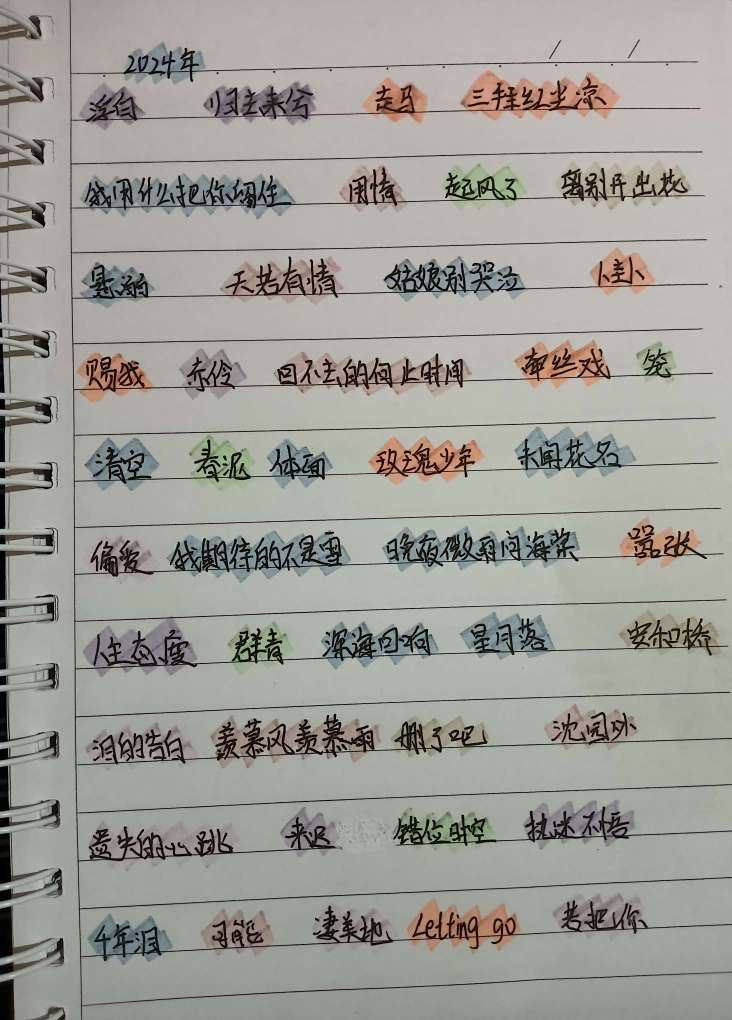 2024年
浮白 归去来兮 走马 三程红尘凉
我用什么把你留住 用情 起风了 离别开出花
悬溺 天若有情 姑娘别哭泣 八卦
赐我 赤伶 回不去的何止时间 牵丝戏 笼
清空 春泥 体面 玫瑰少年 未闻花名
偏爱 我期待的不是雪 晚夜微雨问海棠 嚣张
人生态度 群青 深海回响 星月落 安和桥
泪的告白 羡慕风羡慕雨 删了吧 沈园外
遗失的心跳 来迟 错位时空 执迷不悟
千年泪 可能 凄美地 Letting go 若把你